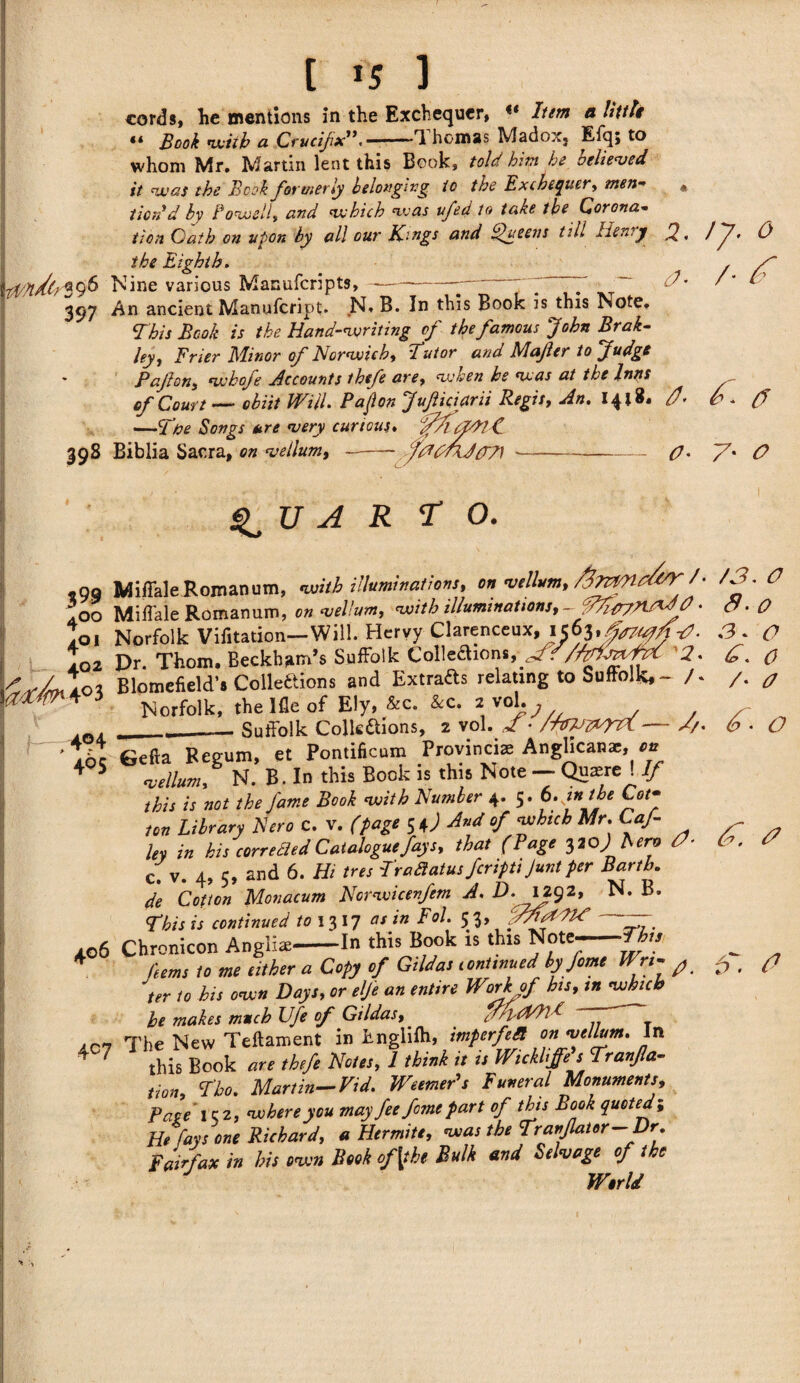 [ 15 ]
cords, he mentions in the Exchequer, “ Item a little
“ Book with a Crucifix”.——Thomas Madox, Eſq; to
whom Mr. Martin lent this Book, told him he believed
it was the Book formerly belonging to the Exchequer, men-
tion'd by Powell, and which was uſed to take the Corona-
tion Oath on upon by all our Kings and Queens till Henry
the Eighth. 2. 17. 0
396 Nine various Manuſcripts, —— 0. 1. 6
397 An ancient Manuſcript. N. B. In this Book is this Note.
This Book is the Hand-writing of the famous John Brak-
ley, Frier Minor of Norwich, Tutor and Maſter to Judge
Paſton, whoſe Accounts theſe are, when he was at the Inns
of Court — obiit Will. Paſton Juſticiarii Regis, An. 1418.
—The Songs are very curious. 0. 6. 6
398 Biblia Sacra, on vellum, —— Jackson —— 0. 7. 0
QUARTO.
399 Miſſale Romanum, with illuminations, on vellum, Brander 1. 13. 0
400 Miſſale Romanum, on vellum, with illuminations, - 0. 8. 0
401 Norfolk Viſitation—Will. Hervy Clarenceux, 1563. 0. 3. 0
402 Dr. Thom. Beckham's Suffolk Collections, 2. 6. 0
403 Blomefield's Collections and Extracts relating to Suffolk, - 1. 1. 0
Norfolk, the Iſle of Ely, &c. &c. 2 vol.
404 —— Suffolk Collections, 2 vol. — 4. 6. 0
405 Geſta Regum, et Pontificum Provinciæ Anglicanæ, on
vellum, N. B. In this Book is this Note — Quære ! If
this is not the ſame Book with Number 4. 5. 6. in the Cot-
ton Library Nero c. v. (page 54) And of which Mr. Caſ-
ley in his corrected Catalogue ſays, that (Page 320) Nero 0. 6. 0
c. v. 4, 5, and 6. Hi tres Tractatus ſcripti ſunt per Barth.
de Cotton Monacum Norwicenſem A. D. 1292, N. B.
This is continued to 1317 as in Fol. 53, ——
406 Chronicon Angliæ——In this Book is this Note——This
ſeems to me either a Copy of Gildas continued by ſome Wri- 0. 5. 0
ter to his own Days, or elſe an entire Work of his, in which
he makes much Uſe of Gildas, ——
407 The New Teſtament in Engliſh, imperfect on vellum. In
this Book are theſe Notes, I think it is Wickliffe's Tranſla-
tion, Tho. Martin—Vid. Weemer's Funeral Monuments,
Page 152, where you may ſee ſome part of this Book quoted;
He ſays one Richard, a Hermite, was the Tranſlator—Dr.
Fairfax in his own Book of the Bulk and Selvage of the
World